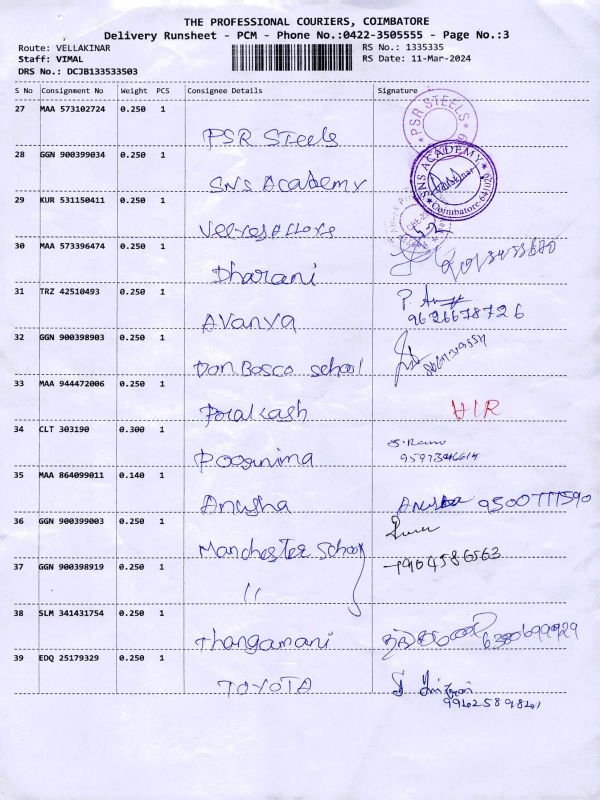 THE PROFESSIONAL COURIERS, COIMBATORE
Delivery Runsheet - PCM - Phone No.:0422-3505555 - Page No.:3
Route: VELLAKINAR RS No.: 1335335
Staff: VIMAL RS Date: 11-Mar-2024
DRS No.: DCJB133533503
S No Consignment No Weight PCS Consignee Details Signature
27 MAA 573102724 0.250 1
PSR STEELS
PSR Steels
28 GGN 900399034 0.250 1
SNS ACADEMY
Coimbatore-641049
SNS Academy
29 KUR 531150411 0.250 1
30 MAA 573396474 0.250 1
Dharani
31 TRZ 42510493 0.250 1
Avanya
9626678726
32 GGN 900398903 0.250 1
Don Bosco school
33 MAA 944472006 0.250 1
Prakash
34 CLT 303190 0.300 1
Poornima
35 MAA 864099011 0.140 1
Anusha Anusha 9500777590
36 GGN 900399003 0.250 1
Manchester School
37 GGN 900398919 0.250 1
7904586563
"
38 SLM 341431754 0.250 1
Thangamani
39 EDQ 25179329 0.250 1
TOYOTA
9942589841